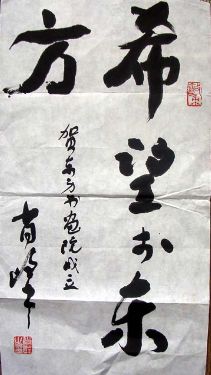 希望于东
方
贺东方书画院成立
肖峰